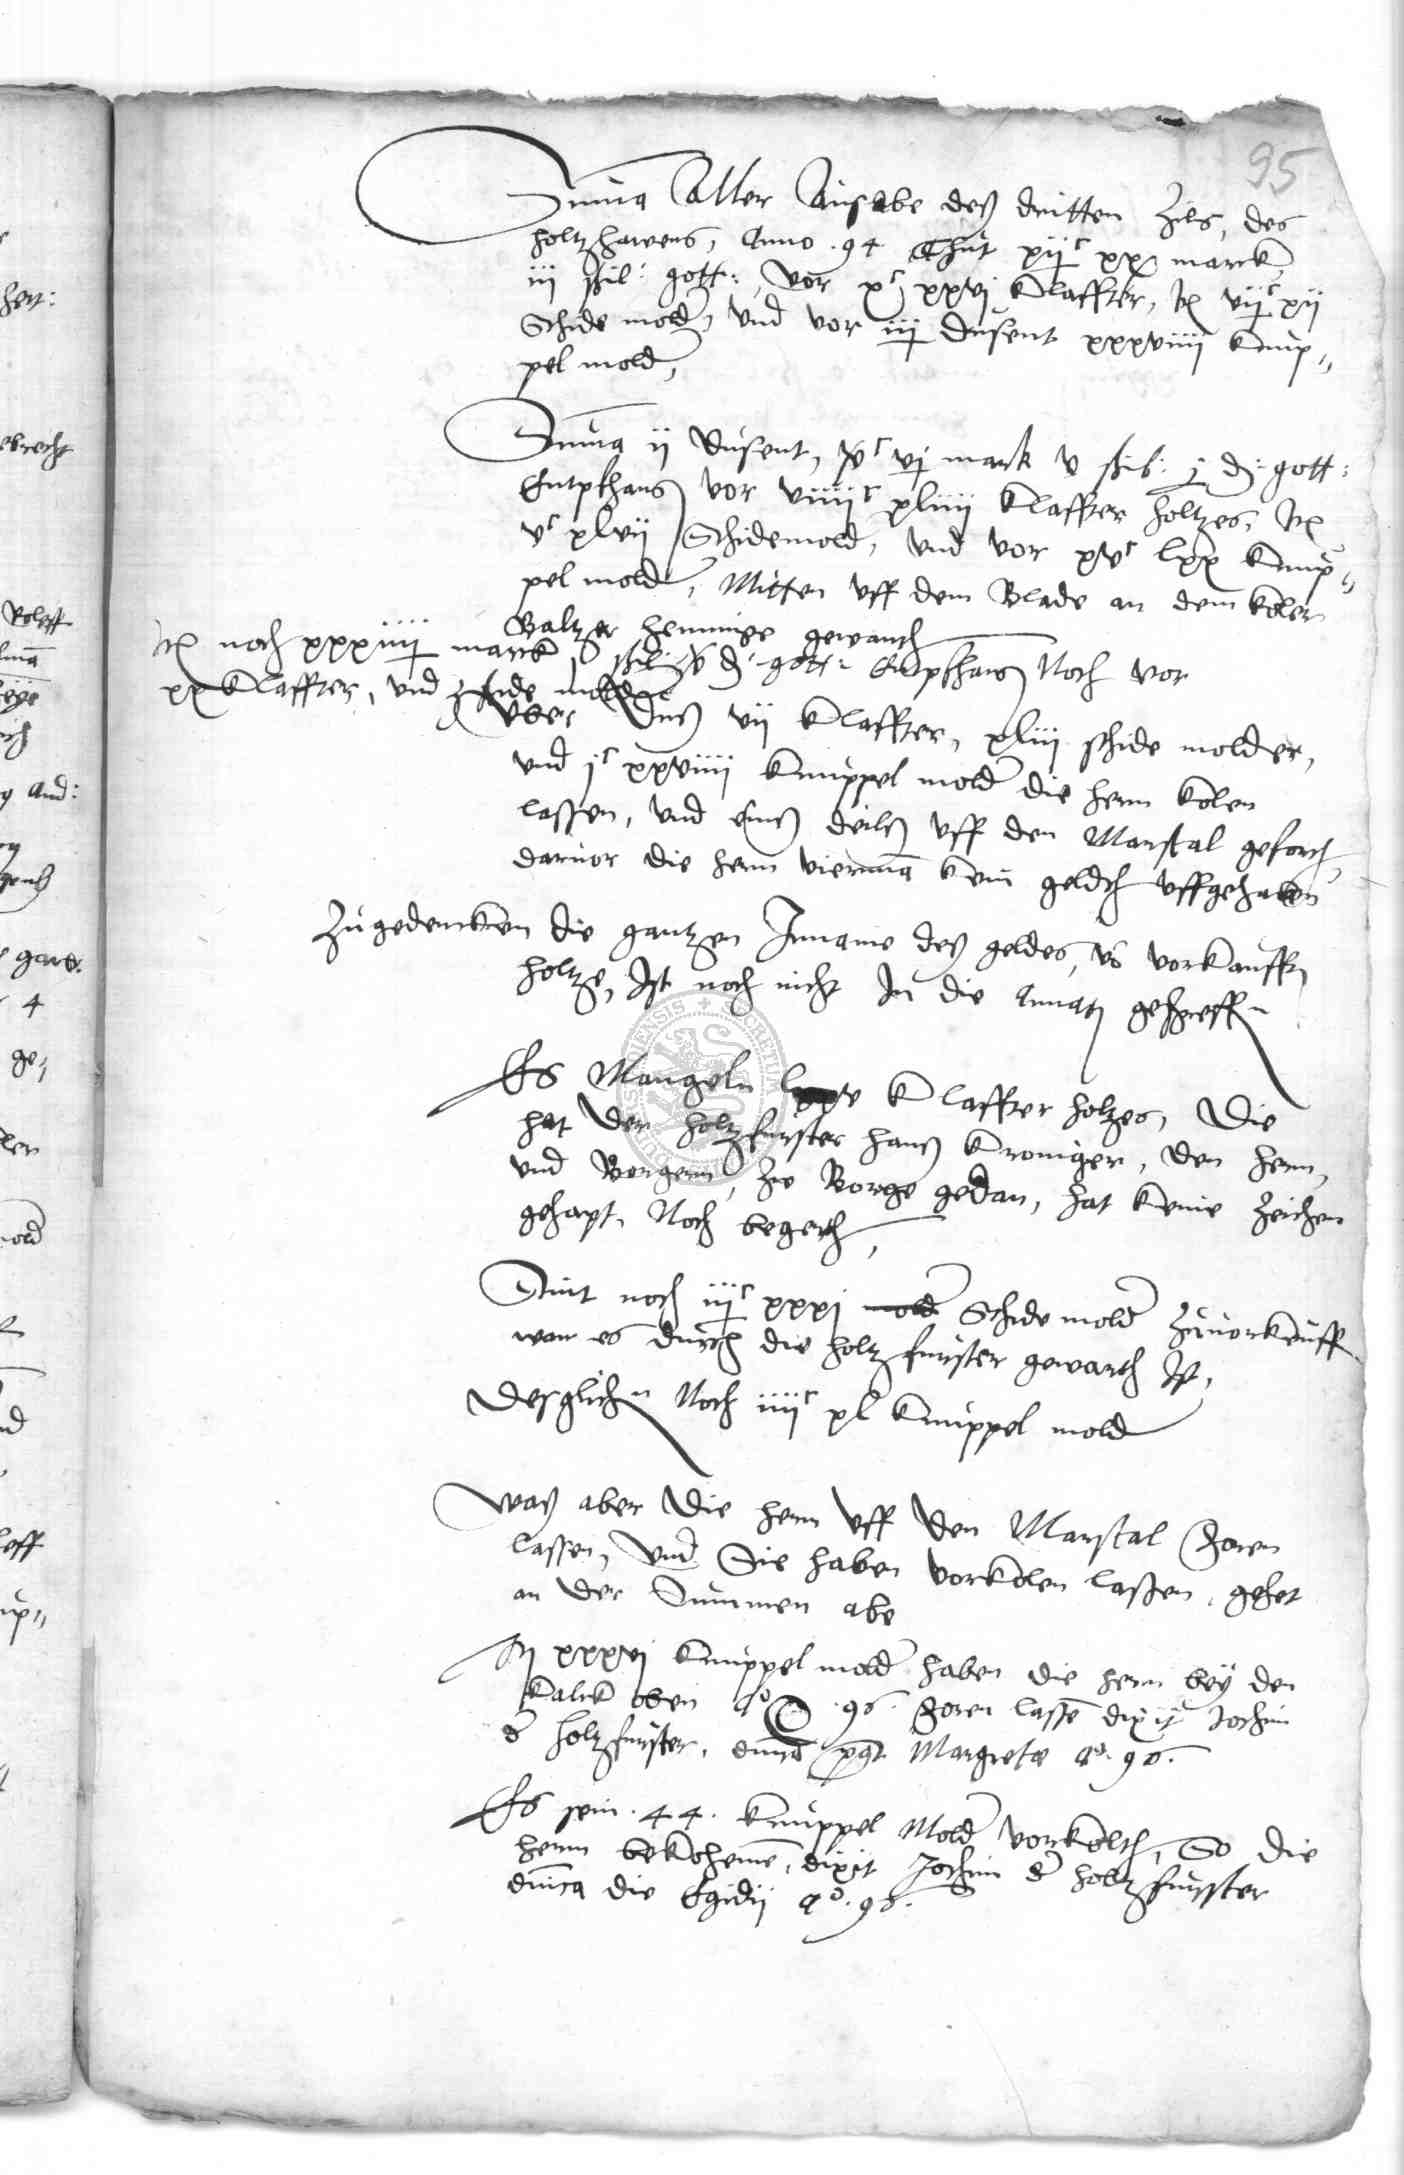 95
Suma Aller Ausgabe des dritten Zils, des
holtzhawens, Anno .94 Thut xijc xx marck
iii schil: gott:, vor xc xxvi Klaffter, It vijc xii
Schide mold, und vor iij dusent xxxviiii knup„
pel mold,
Suma ii dusent, vc vj mark v schil: j d: gott:
Entpfhans vor viiiic xliiii Klaffter holtzes, It
vc xlvii Schidemold, und vor xvc lxx knup„
pel mold, Mitten uff dem Blade an dem koler
Baltzer Henninge gewanth
It noch xxxiiii marck schil d: gott: Entpfhans Noch vor
xx Klaffter, und schide molder
Uber Dus vii Klaffter, xliii schide molder,
und jc xxviiii knuppel mold die hern kolen
lassen, und eins deils uff den Marstal geforth,
darvor die hern vierma kein geldt uffgehaben
Zugedencken die gantzen Inname des geldes, us vorkaufft
holtze, Ist noch nicht In die gescreff
Es Mangeln Klaffter holtzes, Die
hat der holtzfurster Hans Kroniger, den hern,
und Borgern, zu Borge gedan, hat keine zeichen
gehapt Noch begerth,
Sint noch iijc xxxi mold Schide mold zuvorkeuff
wan es durch die holtzfurster gewarth Ist,
Desglichen Noch iiiic xl knuppel mold
Was aber die hern uff den Marstal foren
lassen, und Sie haben vorkolen lassen, gehet
an der Summen abe
It xxxvj knuppel mold haben die hern bey den
Kalck oben ao .96. foren lasse dixit Jochim
d holtzfurster, Margrete ao. 96.
Es sein .44. knuppel Mold vorkolth, So die
hern bekoheme, dixit Jochim d holtzfurster
dnica die Egidii ao. 96.